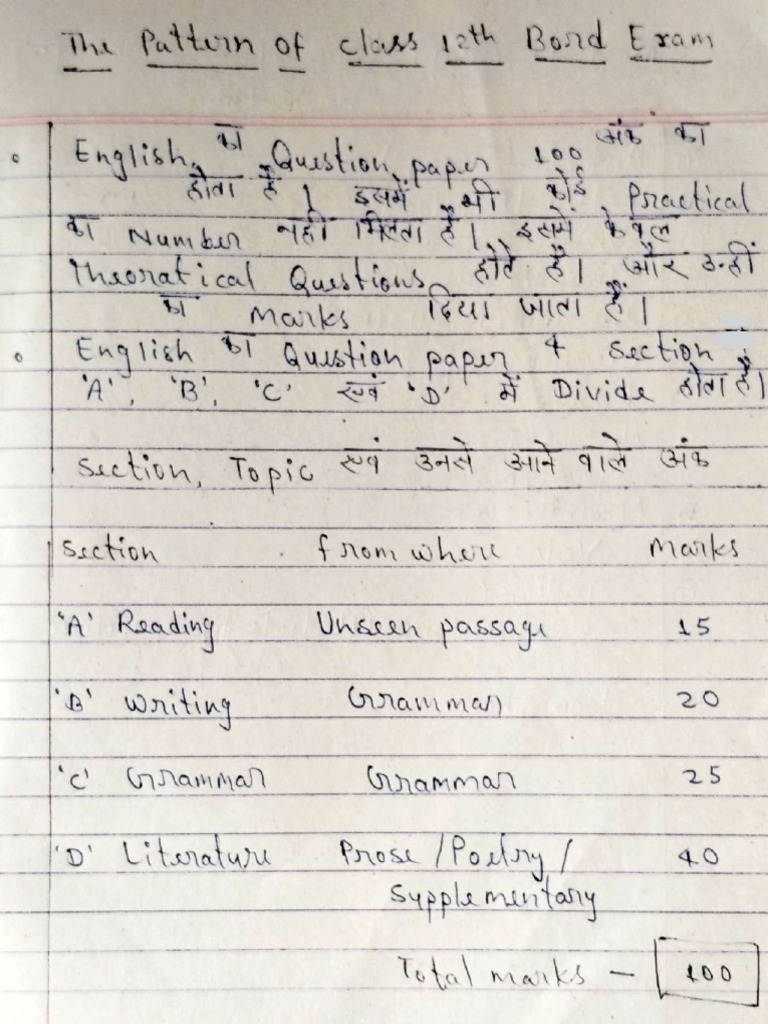 The Pattern of class 12th Bord Exam
English का Question paper 100 अंक का
होता है। इसमें भी कोई Practical
का Number नहीं मिलता है। इसमें केवल
Theoratical Questions होते है। और उन्हीं
का marks दिया जाता हैं।
English का Question paper 4 section
'A', 'B', 'C' एवं 'D' में Divide होता है।
section, Topic एवं उनसे आने वाले अंक
section from where marks
'A' Reading Unseen passage 15
'B' writing Grammar 20
'C' Grammar Grammar 25
'D' Literature Prose / Poetry / 40
Supplementary
Total marks – 100